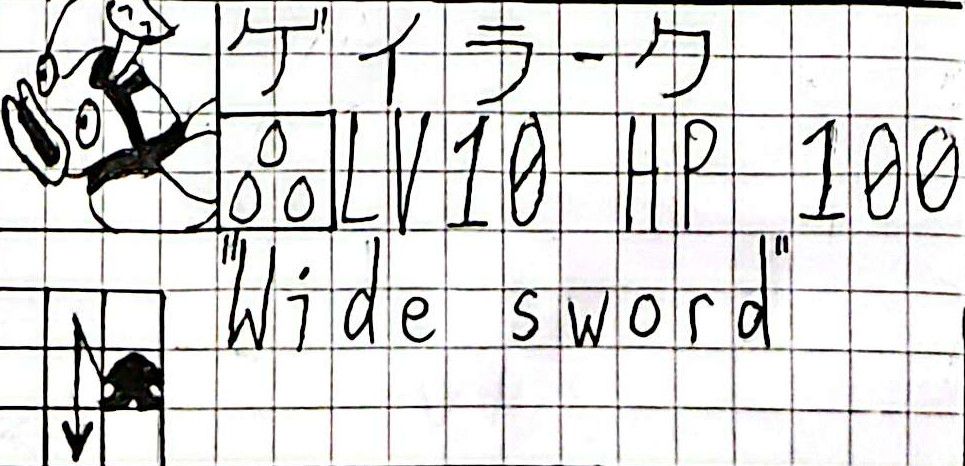 ゲイラーク
LV10 HP 100
"Wide sword"